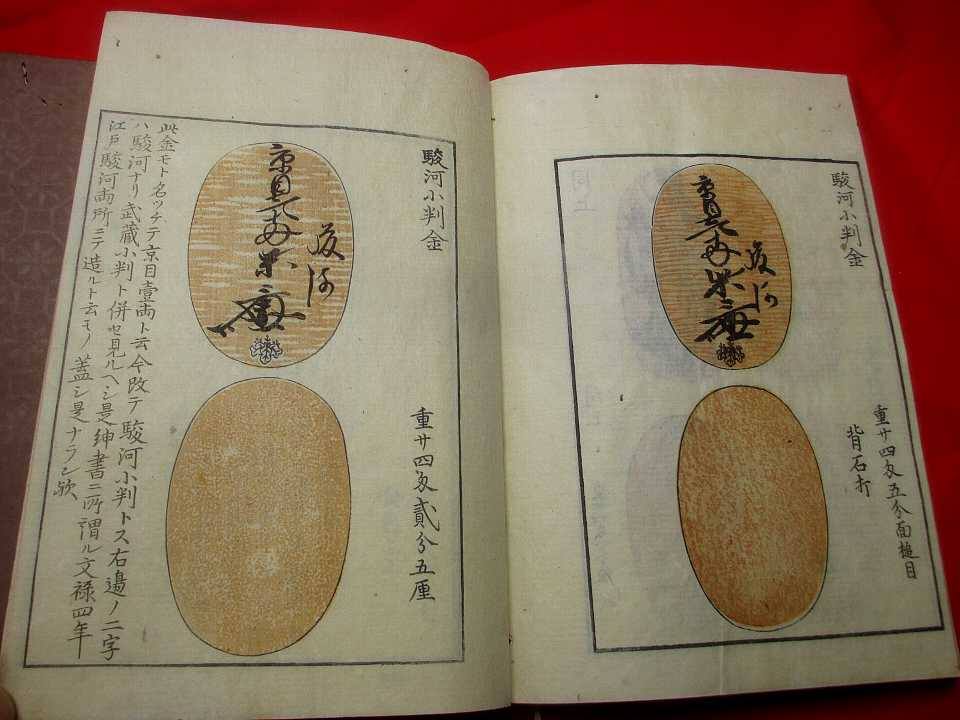 駿河小判金
京目壹両
駿河
重廿四匁五分面槌目
背石打
駿河小判金
京目壹両
駿河
重廿四匁貳分五厘
此金モト名ツケテ京目壹両ト云今改テ駿河小判トス右邉ノ二字
ハ駿河ナリ武蔵小判ト併セ見ルヘシ是紳書ニ所謂ル文禄四年
江戸駿河両所ニテ造ルト云モノ蓋シ是ナラン歟